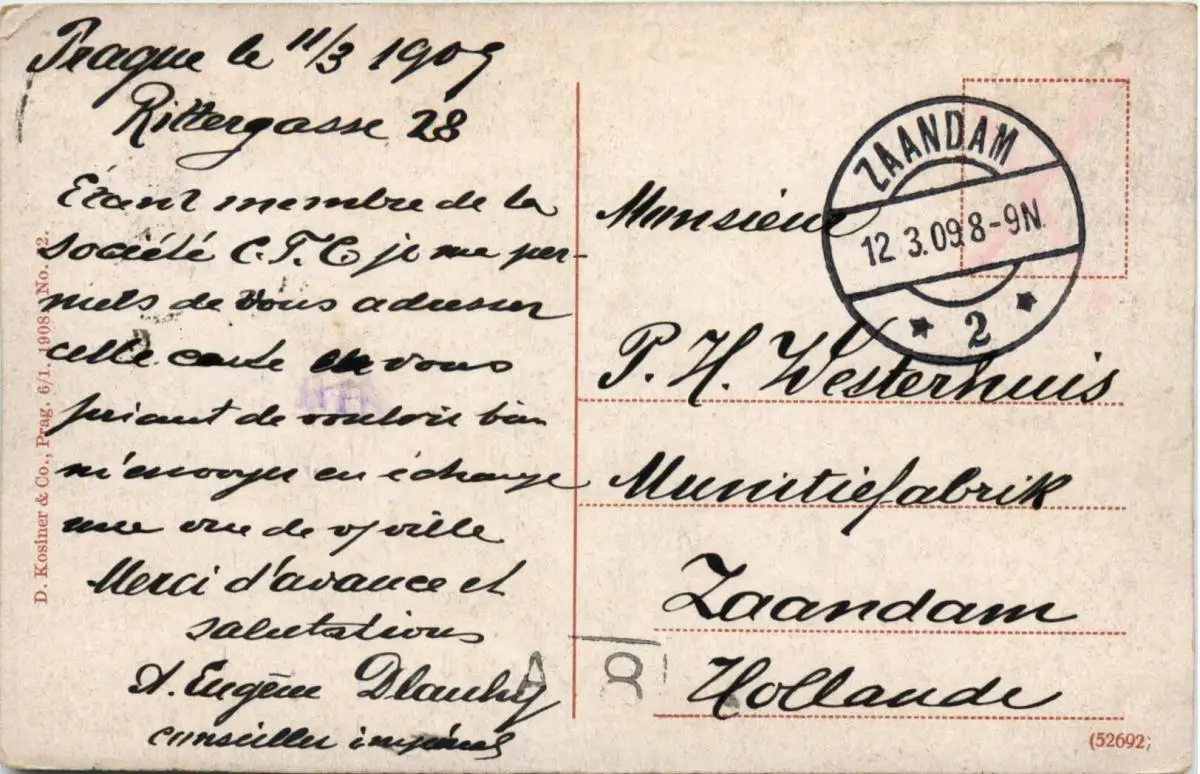 Prague le 11/3 1909
Rittergasse 28
Étant membre de la
société C.T.C je me per-
mets de vous adresser
cette carte en vous
priant de vouloir bien
m'envoyer en échange
une vue de v/ville
Merci d'avance et
salutations
A. Eugène Dlauhy
conseiller impérial
D. Kosiner & Co., Prag. 6/1. 1908. No. 2.
ZAANDAM
12 3.09 8-9N
2
Monsieur
P. H. Westerhuis
Munitiefabrik
Zaandam
Hollande
(52692)